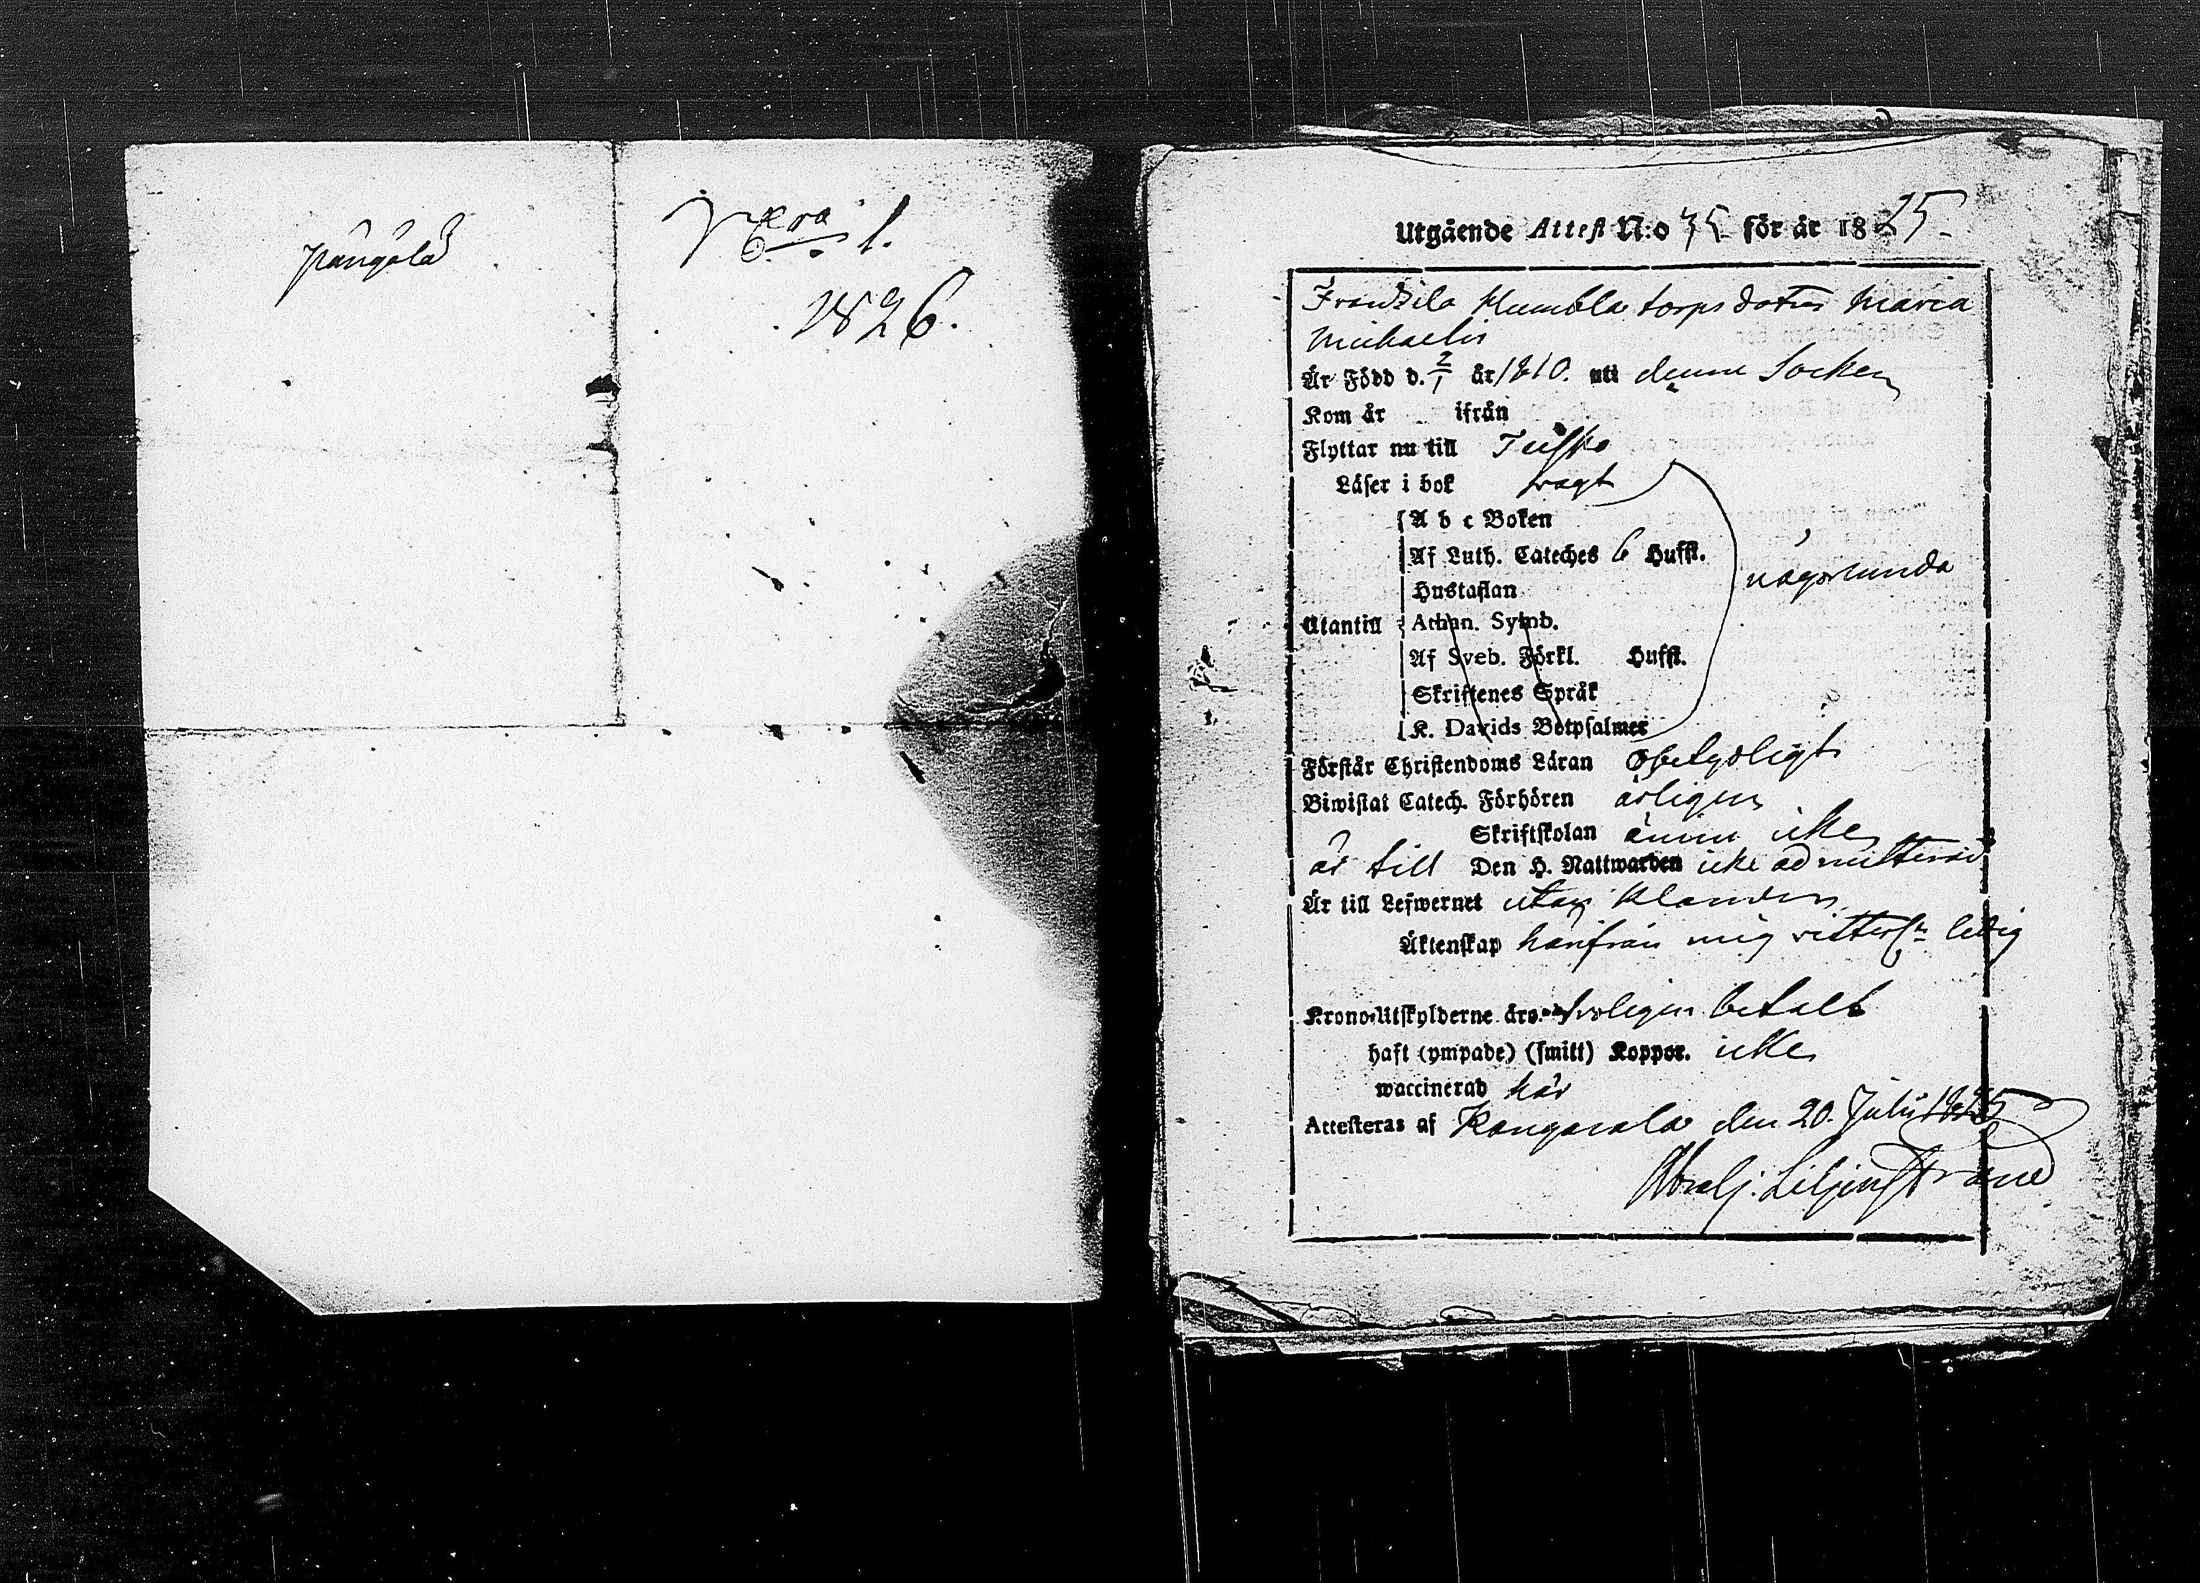 N:ero 1.
1826.
Utgående Attest N:o 35 för år 1825.
Frantsila Humbla torps dotter Maria
Michaelis
Är Född d. 2/1 år 1810. uti denna Socken
Kom år ifrån
Flyttar nu till
Läser i bok svagt
A b c Boken
Af Luth. Cateches 6 Hufst.
någorlunda
Hustaflan
Utantill Athan. Symb.
Af Sveb. Förkl. Hufst.
Skriftenes Språk
K. Davids Botpsalmer
Förstår Christendoms Läran obetydligt
Biwistat Catech. Förhören årligen
Skriftskolan ännu icke
är till Den H. Nattwarden icke admitterad
Är till Lefwernet utan klander
Äktenskap härifrån mig ledig
Krono-Utskylderne äro troligen betalt
haft (ympade) (smitt) Koppor. icke
waccinerad här
Attesteras af Kangasala den 20. Julii 1825
Liljenstrand